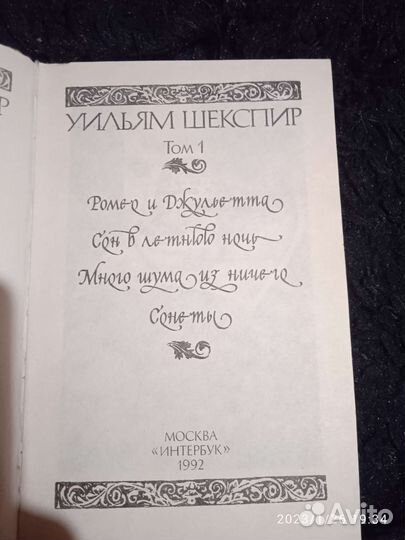 Р
УИЛЬЯМ ШЕКСПИР
Том 1
Ромео и Джульетта
Сон в летнюю ночь
Много шума из ничего
Сонеты
МОСКВА
«ИНТЕРБУК»
1992
2023/1/25 19:34
Avito